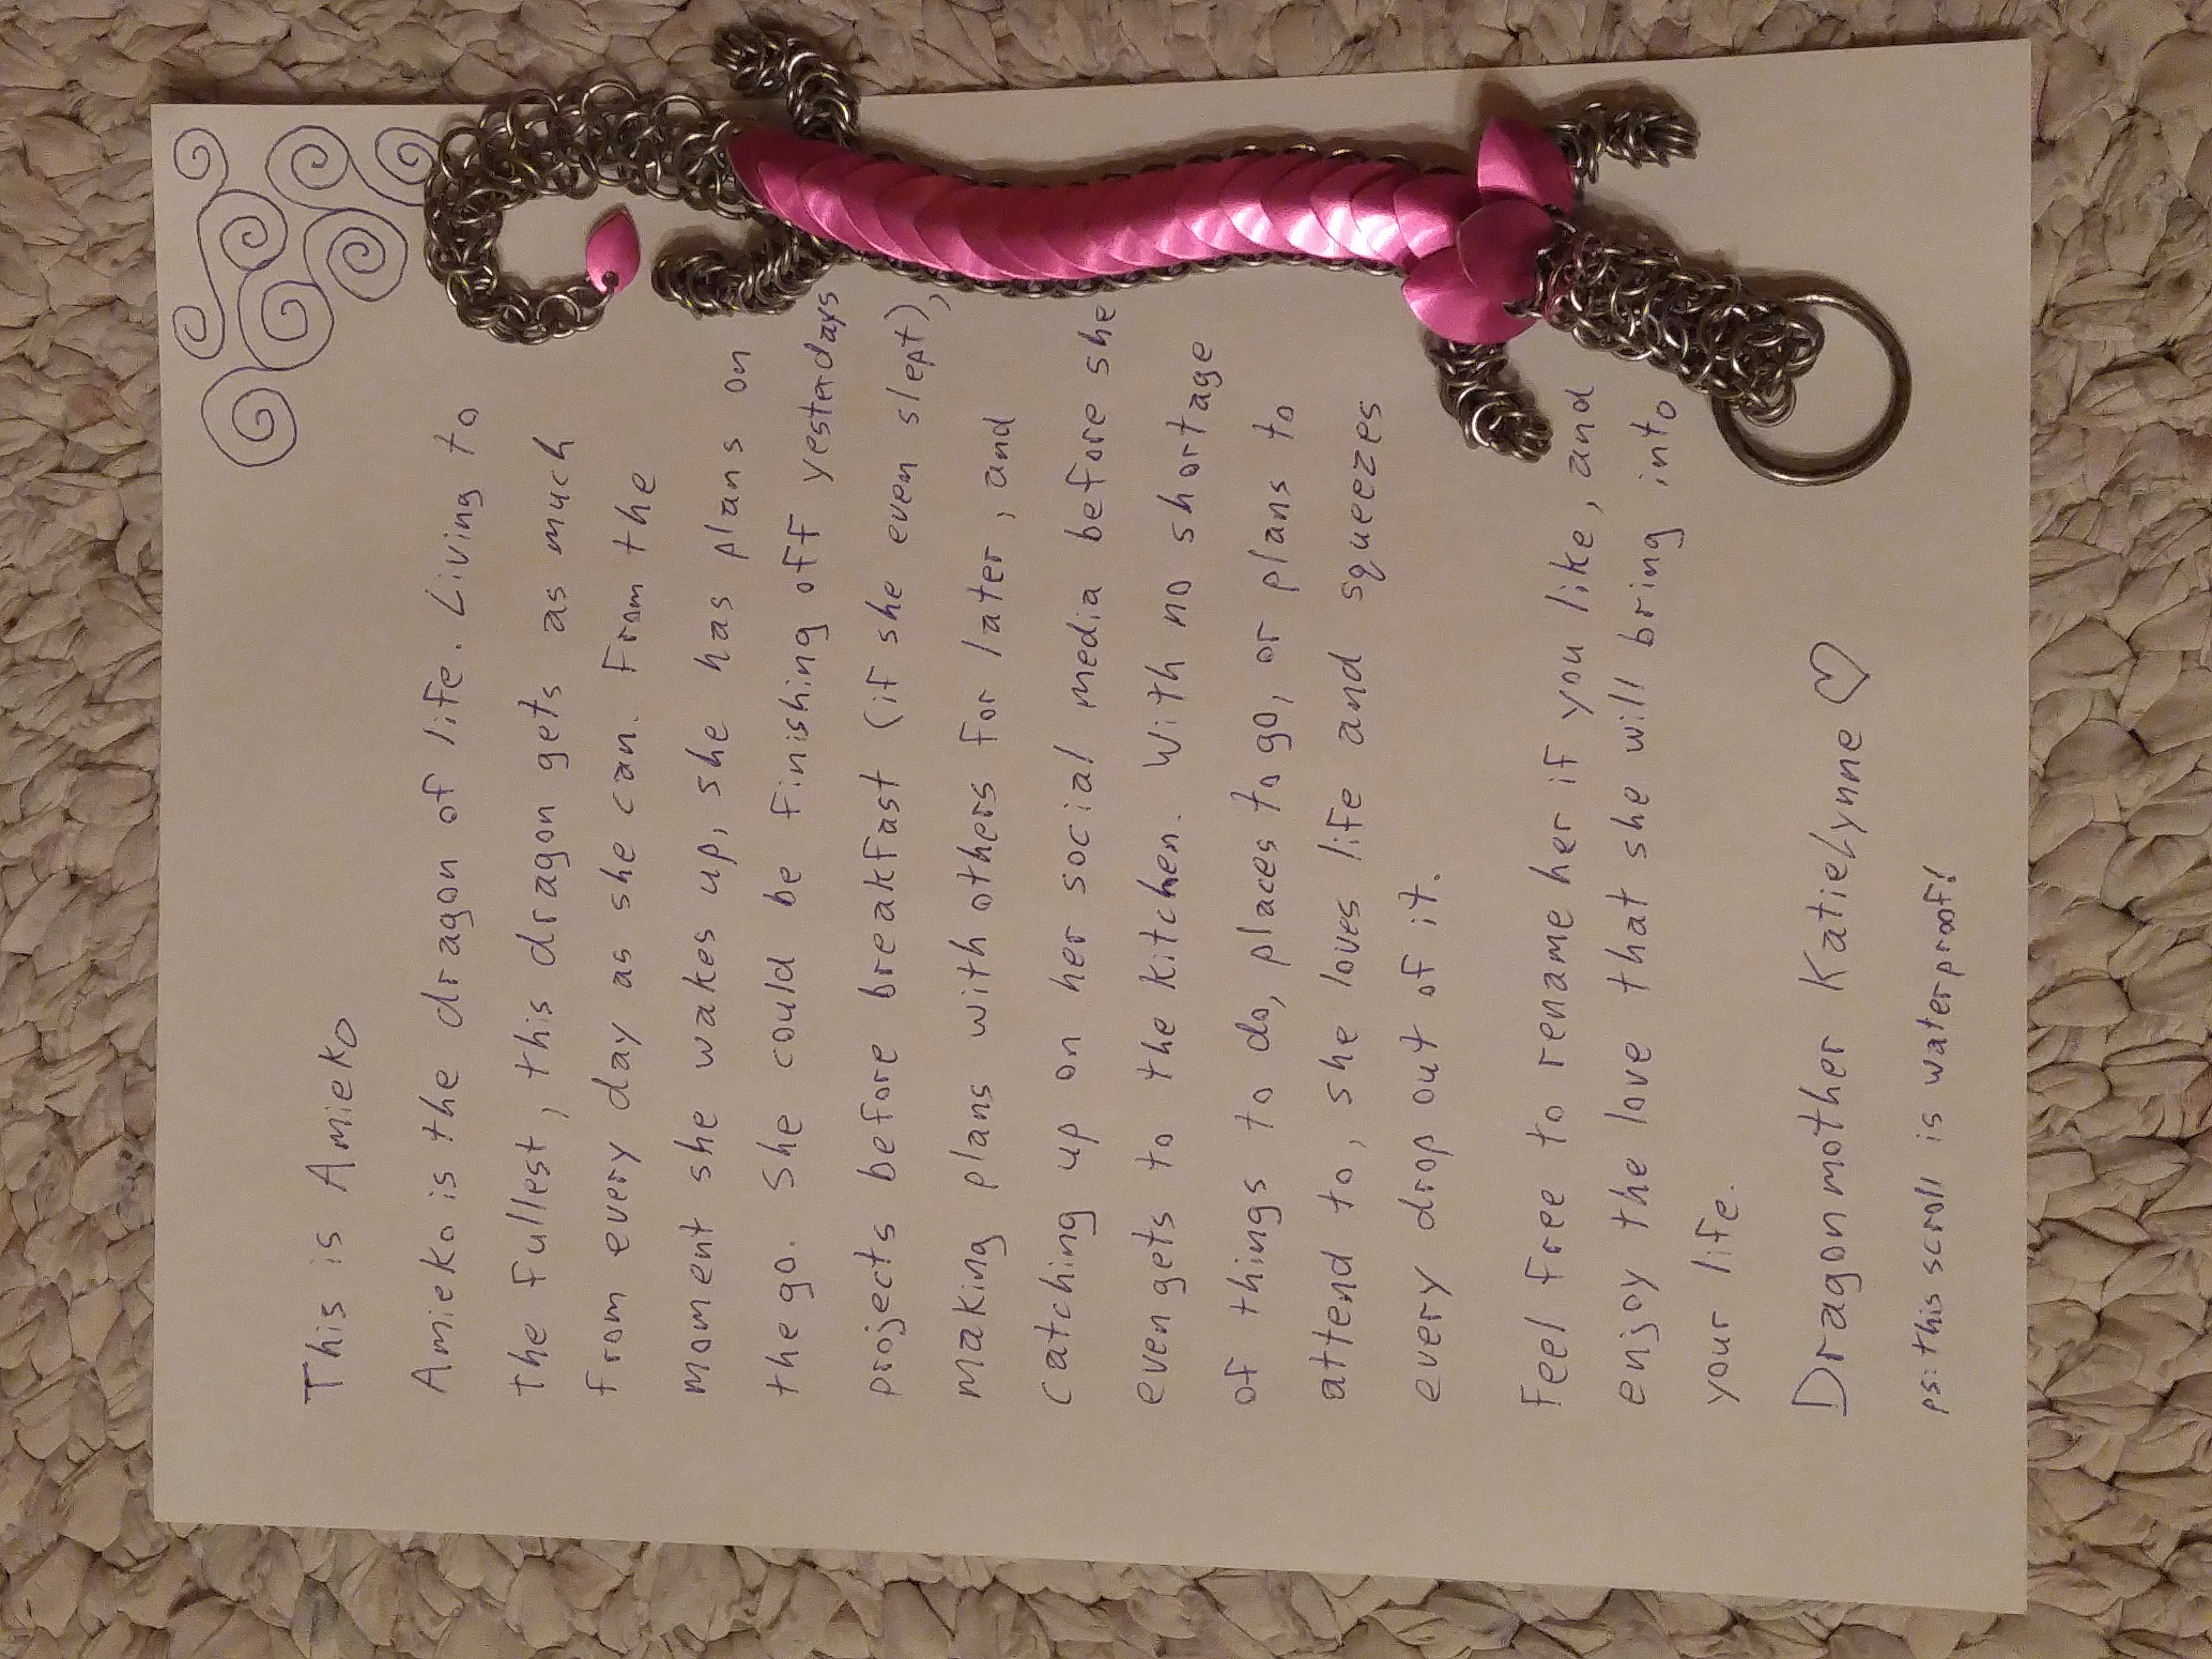 This is Amieko
Amieko is the dragon of life. Living to
the fullest, this dragon gets as much
from every day as she can. From the
moment she wakes up, she has plans on
the go. She could be finishing off yesterdays
projects before breakfast (if she even slept),
making plans with others for later, and
catching up on her social media before she
even gets to the kitchen. With no shortage
of things to do, places to go, or plans to
attend to, she loves life and squeezes
every drop out of it.
Feel free to rename her if you like, and
enjoy the love that she will bring into
your life.
Dragonmother KatieLynne ♡
ps: this scroll is waterproof!